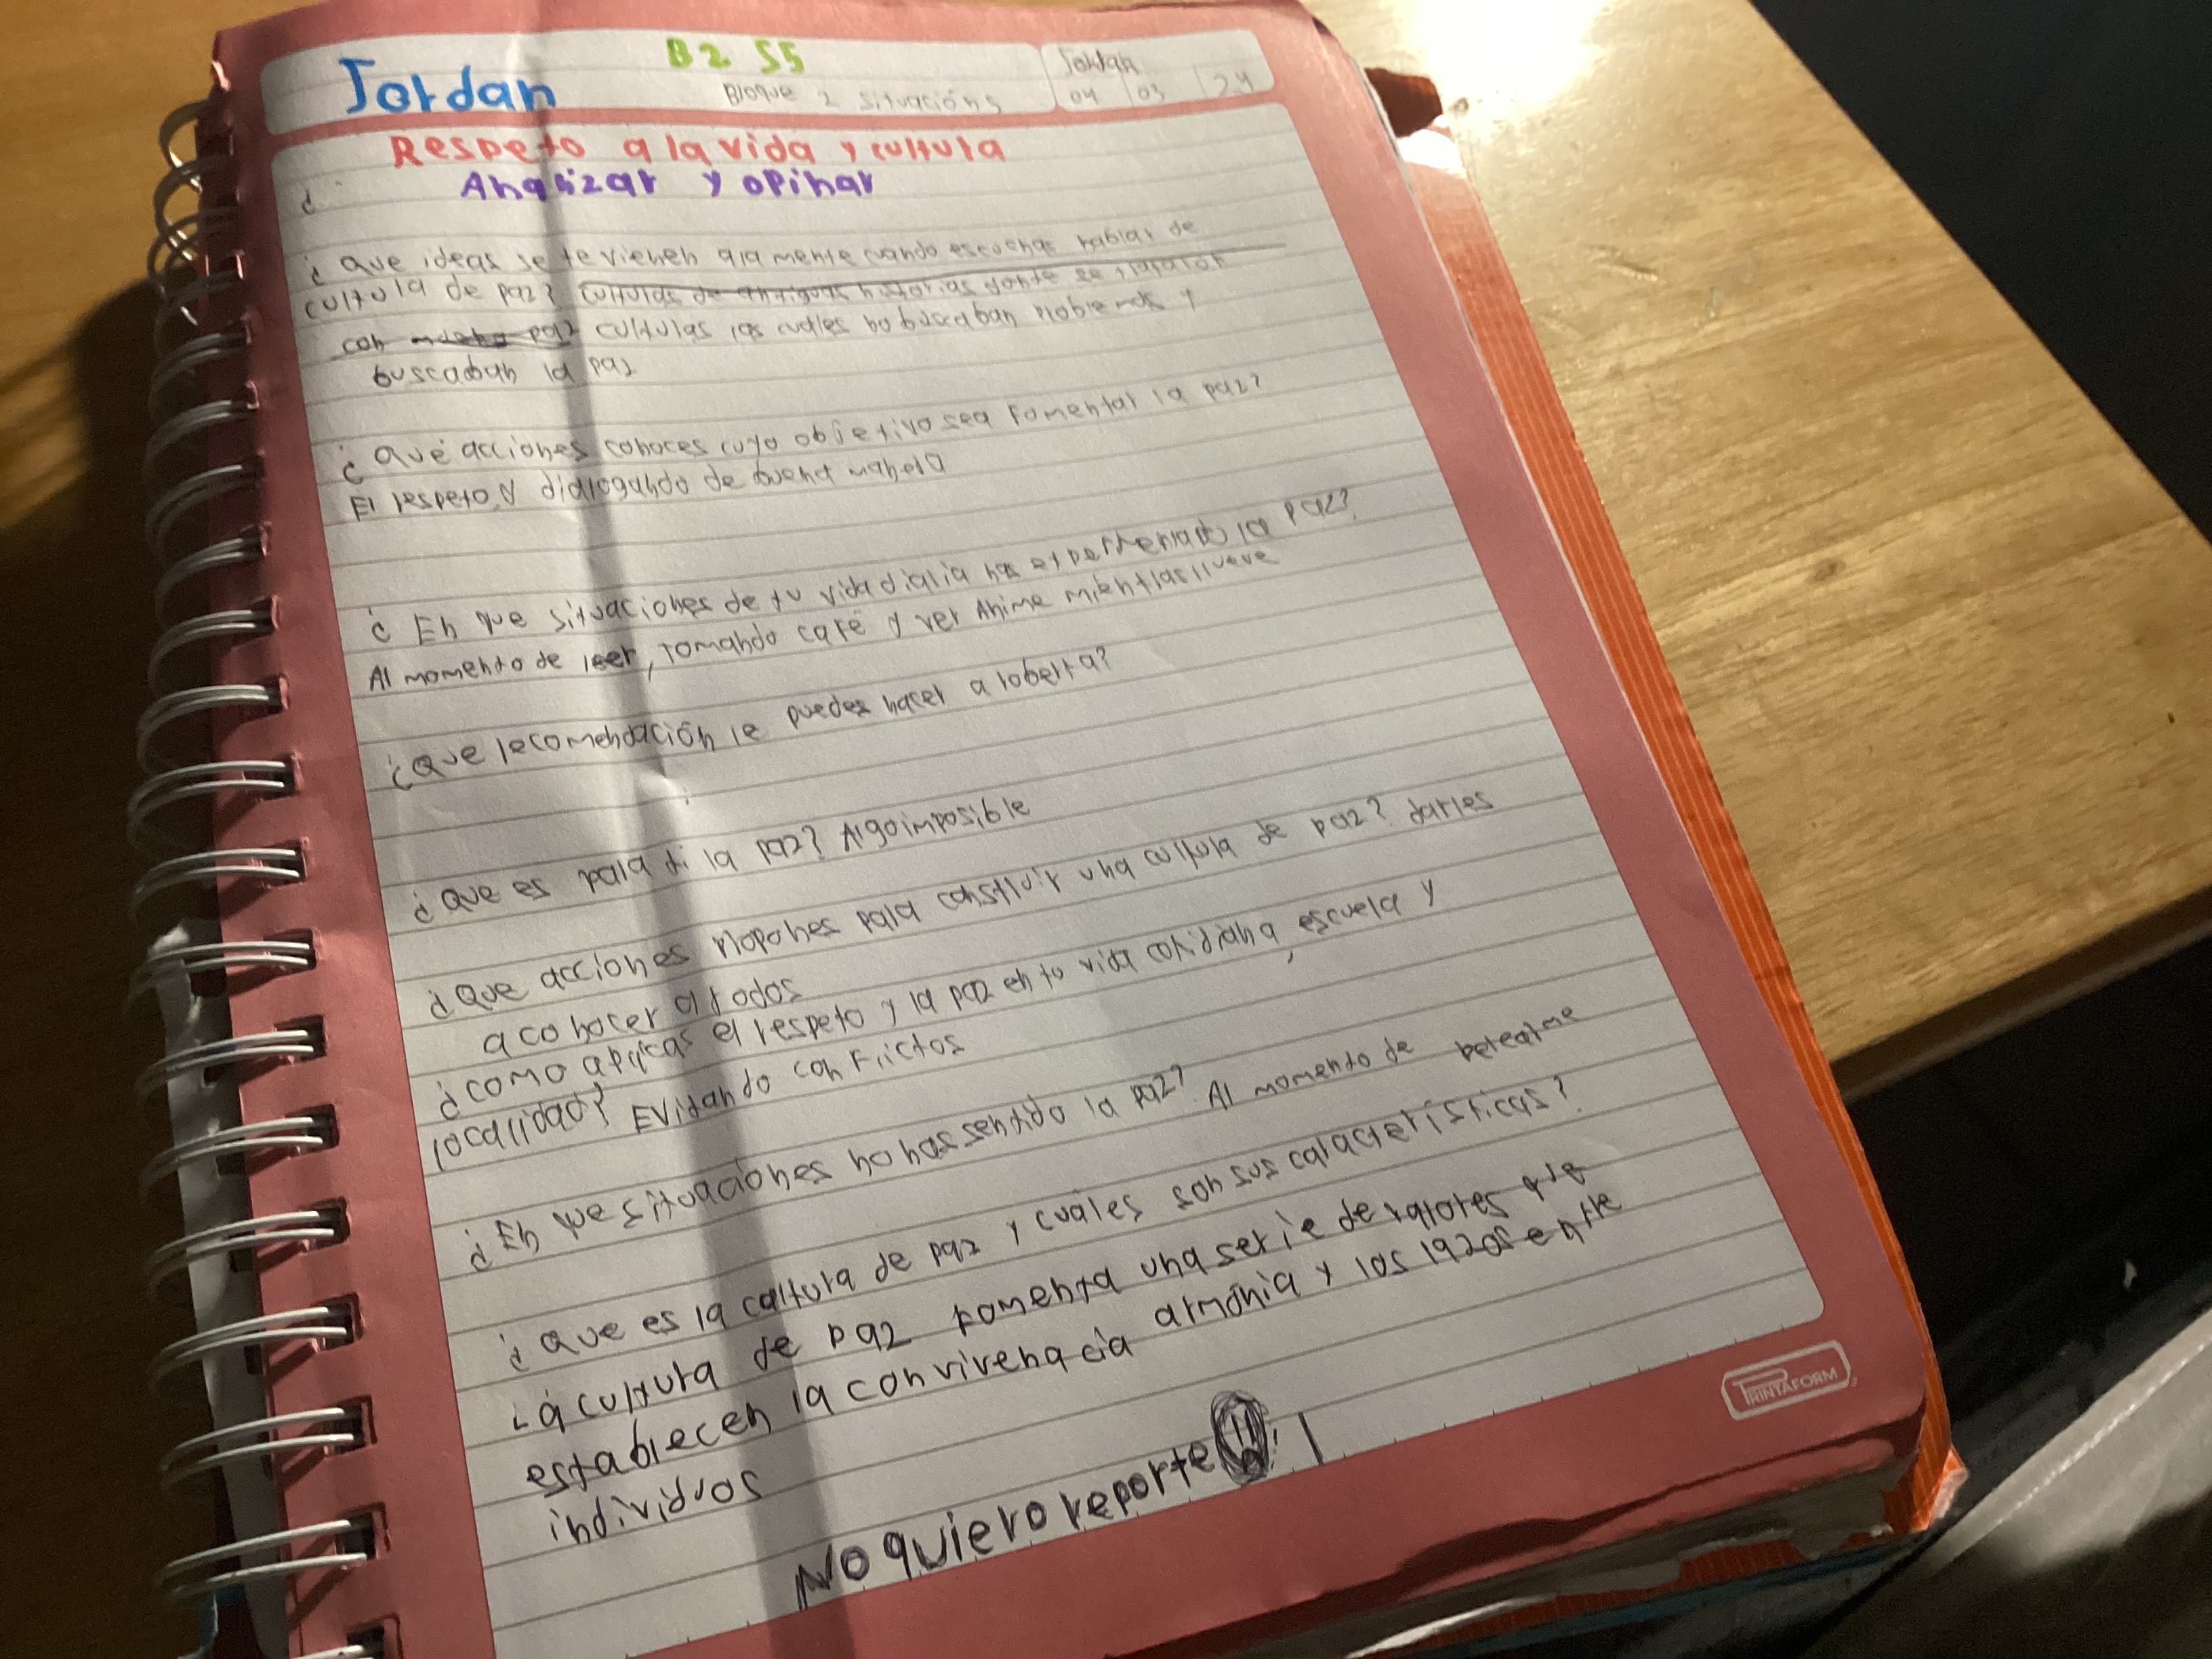 B2 S5
Jordan
Bloque 2 situación 5
Jordan
04 03 24
Respeto a la vida y cultura
Analizar y opinar
¿
¿Que ideas se te vienen a la mente cuando escuchas hablar de
cultura de paz? culturas de antiguas historias donde se trataron
con mucha paz culturas las cuales no buscaban problemas y
buscaban la paz
¿Qué acciones conoces cuyo objetivo sea fomentar la paz?
El respeto, y dialogando de buena manera
¿En que situaciones de tu vida diaria has experimentado la paz?
Al momento de leer, tomando café y ver Anime mientras llueve
¿Que recomendación le puedes hacer a roberta?
¿Que es para ti la paz? Algo imposible
¿Que acciones propones para construir una cultura de paz? darles
a conocer a todos
¿como aplicas el respeto y la paz en tu vida cotidiana, escuela y
localidad? Evitando conflictos
¿En que situaciones no has sentido la paz? Al momento de pelearme
¿que es la caltura de paz y cuáles son sus características?
La cultura de paz fomenta una serie de valores que
establecen la convivenacia armónia y los lazos entre
individuos
No quiero reporte
PRINTAFORM